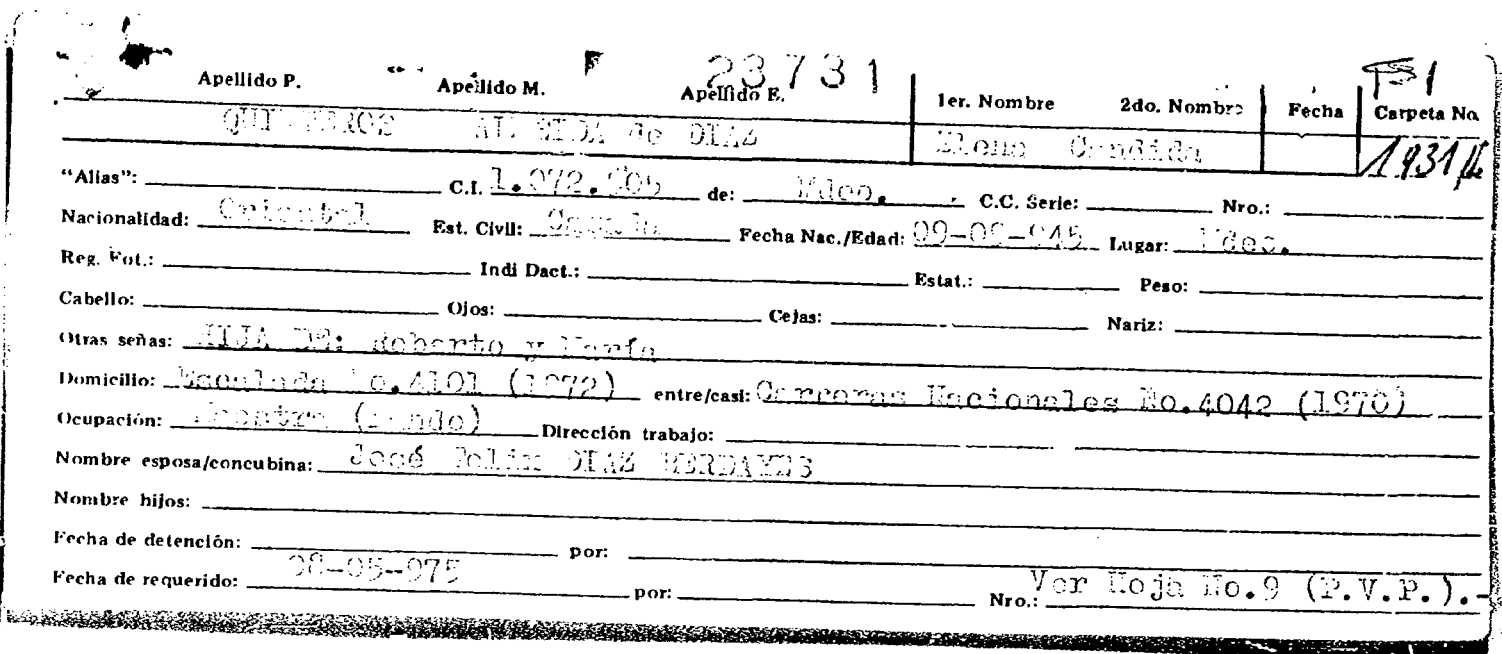 23731
Apellido P. Apellido M. Apellido E. 1er. Nombre 2do. Nombre Fecha Carpeta No.
de DIAZ Elena Candida
"Alias": C.I. de: Mdeo. C.C. Serie: Nro.:
Nacionalidad: Oriental Est. Civil: Casada Fecha Nac./Edad: Lugar: Mdeo.
Reg. Fot.: Indi Dact.: Estat.: Peso:
Cabello: Ojos: Cejas: Nariz:
Otras señas: HIJA DE: Roberto y María
Domicilio: No.4101 (1972) entre/casi: Carreras Nacionales No.4042 (1970)
Ocupación: Dirección trabajo:
Nombre esposa/concubina: José Felix DIAZ
Nombre hijos:
Fecha de detención: por:
Fecha de requerido: 08-05-975 por: Nro.: Ver Hoja No.9 (P.V.P.).-